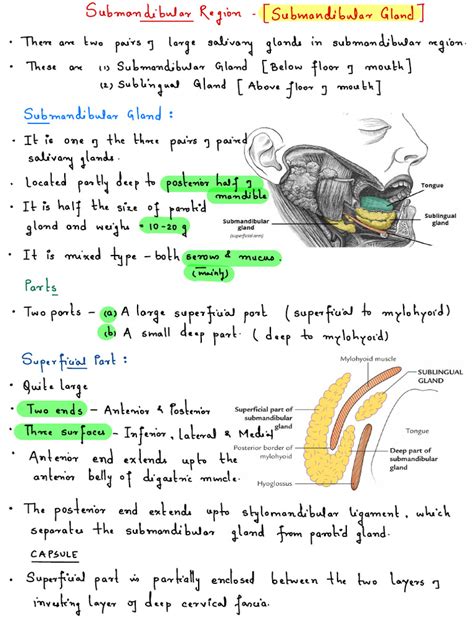 Submandibular Region - [Submandibular Gland]
• There are two pairs of large salivary glands in submandibular region.
• These are (1) Submandibular Gland [Below floor of mouth]
(2) Sublingual Gland [Above floor of mouth]
Submandibular Gland :
• It is one of the three pairs of paired
salivary glands.
• Located partly deep to posterior half of
mandible
• It is half the size of parotid
gland and weighs - 10-20 g
• It is mixed type - both serous & mucus.
(mainly)
Tongue
Submandibular
gland
(superficial arm)
Sublingual
gland
Parts
• Two parts - (a) A large superficial part (superficial to mylohyoid)
(b) A small deep part. (deep to mylohyoid)
Superficial Part :
• Quite large
• Two ends - Anterior & Posterior
• Three surfaces - Inferior, lateral & Medial
• Anterior end extends upto the
anterior belly of digastric muscle.
Mylohyoid muscle
SUBLINGUAL
GLAND
Superficial part of
submandibular
gland
Tongue
Posterior border of
mylohyoid
Deep part of
submandibular
gland
Hyoglossus
• The posterior end extends upto stylomandibular ligament, which
separates the submandibular gland from parotid gland.
CAPSULE
• Superficial part is partially enclosed between the two layers of
investing layer of deep cervical fascia.